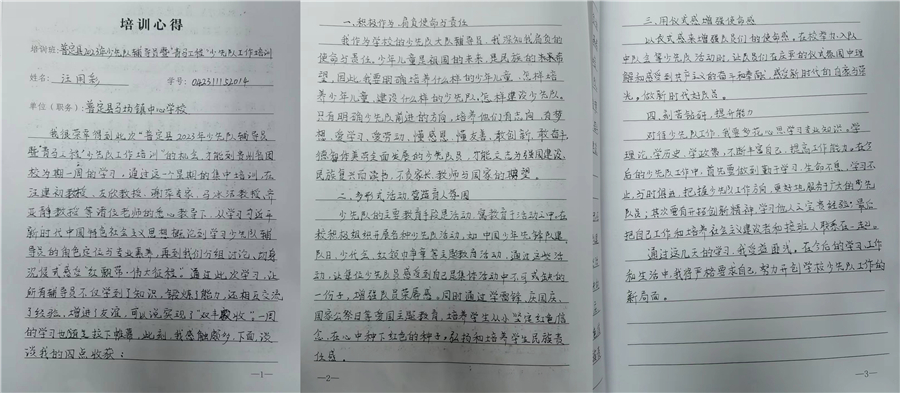 培训心得
培训班:普定县2023年少先队辅导员暨“青马工程”少先队工作培训
姓名: 汪国彪 学号: 04231152014
单位(职务): 普定县马场镇中心学校
我很荣幸得到此次“普定县2023年少先队辅导员
暨“青马工程”少先队工作培训”的机会,才能到贵州省团
校为期一周的学习,通过这一星期的集中培训,在
汪建初教授、左欣教授、谢萍专家、马冰洁教授、齐
亚静教授等诸位老师的悉心教导下,从学习习近平
新时代中国特色社会主义思想概论到学习少先队辅
导员的角色定位与专业素养,再到我们分组讨论,切身
沉浸式感受“红飘带·伟大征程”。通过此次学习,让
所有辅导员不仅学到了知识,锻炼了能力,还相互交流
了经验,增进了友谊,可以说实现了“双丰收”。一周
的学习也随之拉下帷幕,此刻,我感触颇多,下面,谈
谈我的四点收获:
—1—
一、积极作为,肩负使命与责任
我作为学校的少先队大队辅导员,我深知我肩负的
使命与责任。少年儿童是祖国的未来,是民族的未来希
望。因此,我要明确培养什么样的少年儿童,怎样培
养少年儿童,建设什么样的少先队,怎样建设少先队。
只有明确少先队前进的方向,培养他们有志向、有梦
想,爱学习、爱劳动,懂感恩、懂友善,敢创新、敢奋斗,
德智体美劳全面发展的少先队员,才能立志为强国建设、
民族复兴而读书,不负家长、教师与国家的期望。
二、多形式活动,营造育人氛围
少先队的主要教育手段是活动,寓教育于活动之中。在
校积极组织开展各种少先队活动,如中国少年先锋队建
队日、少代会、红领巾争章等主题教育活动,通过这些活
动,让每位少先队员感受到自己是集体活动中不可或缺的
一份子,增强队员荣辱感。同时通过学雷锋、庆国庆、
国家公祭日等爱国主题教育,培养学生从小坚定红色信
念,在心中种下红色的种子,弘扬和培养学生民族责
任感。
—2—
三、用仪式感增强使命感
以仪式感来增强队员们的使命感。在校举办入队、
中队会等少先队活动时,让队员们在庄严的仪式氛围中理
解和感受到共产主义的奋斗和奉献,感受新时代的自豪与荣
光,做新时代好队员。
四、刻苦钻研,提升能力
对待少先队工作,我要多花心思学习专业知识。学
理论,学历史,学政策,不断丰富自己,提高工作能力。在今
后的少先队工作中,首先要做到勤于学习,生命不息,学习不
止,与时俱进,把握少先队工作方向,更好地服务于广大的少先
队员;其次要有开拓创新精神,学习他人之宝贵经验;最后
把自己工作和培养社会主义建设者和接班人联系在一起。
通过这几天的学习,我受益匪浅,在今后的学习工作
和生活中,我将严格要求自己,努力开创学校少先队工作的
新局面。
—3—